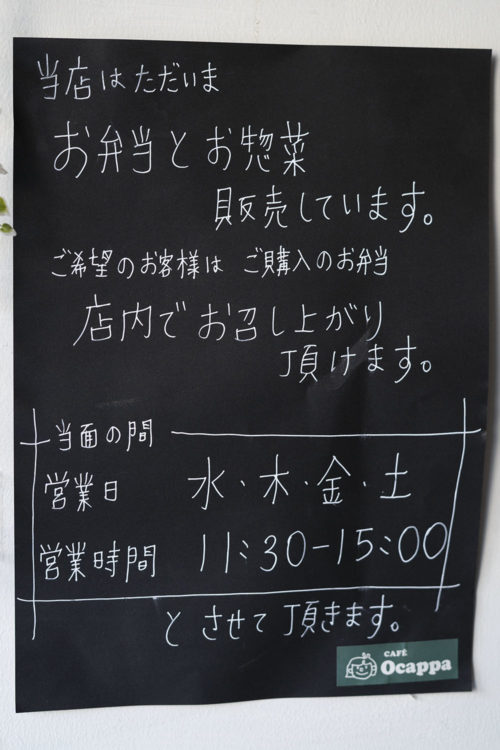 当店はただいま
お弁当とお惣菜
販売しています。
ご希望のお客様は ご購入のお弁当
店内でお召し上がり
頂けます。
当面の間
営業日 水・木・金・土
営業時間 11:30-15:00
と させて頂きます。
CAFÉ
Ocappa